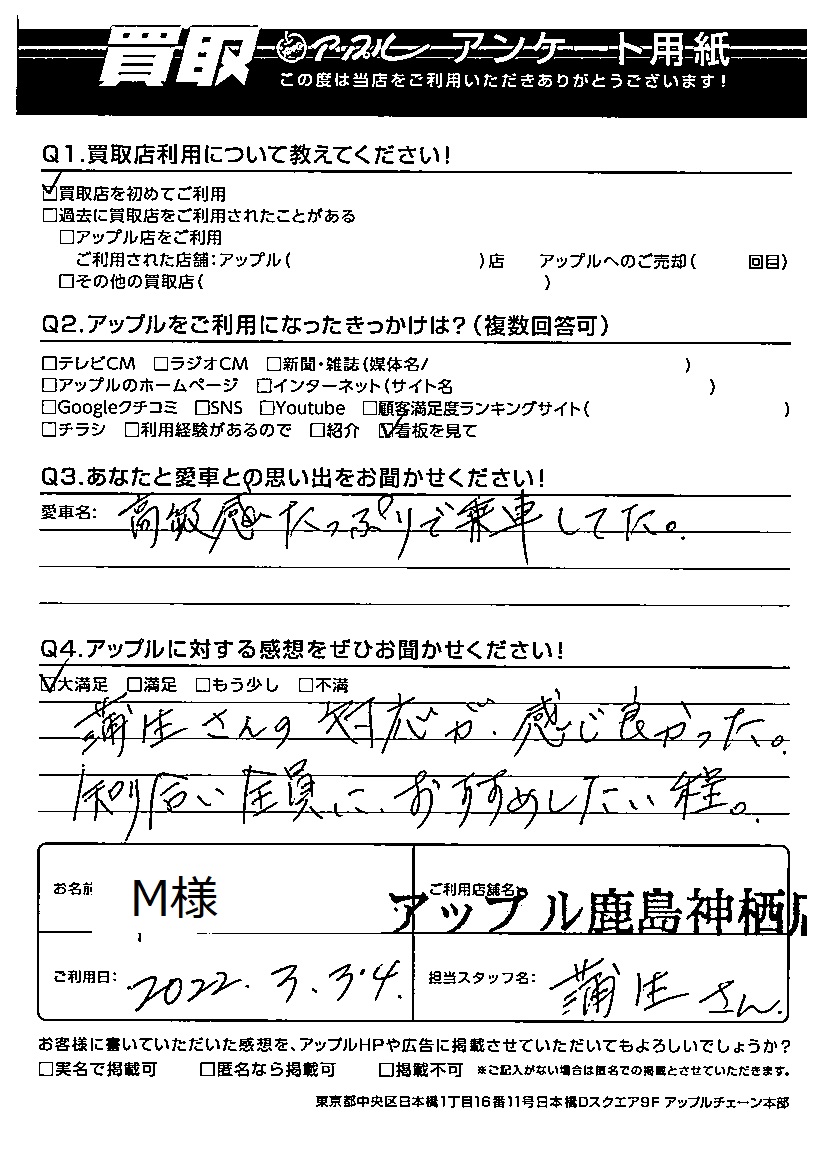 買取 アップル アンケート用紙
この度は当店をご利用いただきありがとうございます!
Q1.買取店利用について教えてください!
☑買取店を初めてご利用
□過去に買取店をご利用されたことがある
□アップル店をご利用
ご利用された店舗:アップル( )店 アップルへのご売却( 回目)
□その他の買取店( )
Q2.アップルをご利用になったきっかけは?(複数回答可)
□テレビCM □ラジオCM □新聞・雑誌(媒体名/ )
□アップルのホームページ □インターネット(サイト名 )
□Googleクチコミ □SNS □Youtube □顧客満足度ランキングサイト( )
□チラシ □利用経験があるので □紹介 ☑看板を見て
Q3.あなたと愛車との思い出をお聞かせください!
愛車名: 高級感たっぷりで乗車してた。
Q4.アップルに対する感想をぜひお聞かせください!
☑大満足 □満足 □もう少し □不満
蒲生さんの対応が、感じ良かった。
知り合い全員に、おすすめしたい程。
お名前 M様 ご利用店舗名: アップル鹿島神栖店
ご利用日: 2022.3.34. 担当スタッフ名: 蒲生さん.
お客様に書いていただいた感想を、アップルHPや広告に掲載させていただいてもよろしいでしょうか?
□実名で掲載可 □匿名なら掲載可 □掲載不可 ※ご記入がない場合は匿名での掲載とさせていただきます。
東京都中央区日本橋1丁目16番11号日本橋Dスクエア9F アップルチェーン本部